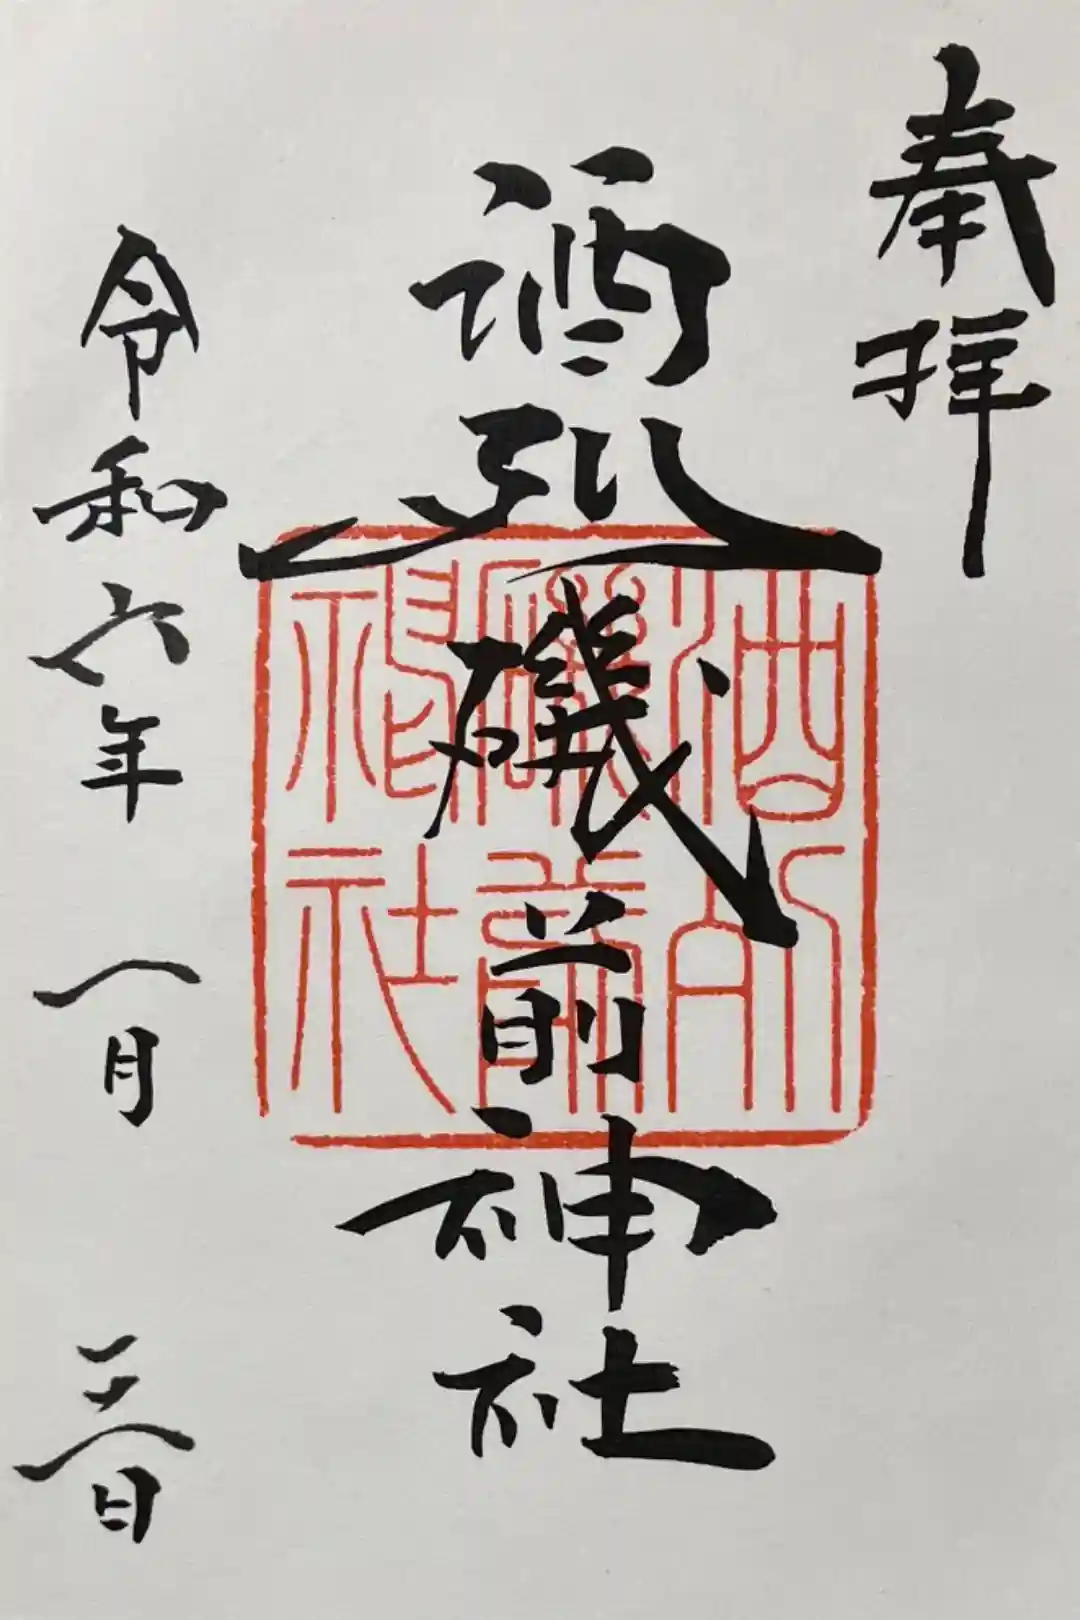 奉拝
酒列磯前神社
令和六年一月三日
酒列
磯前
神社